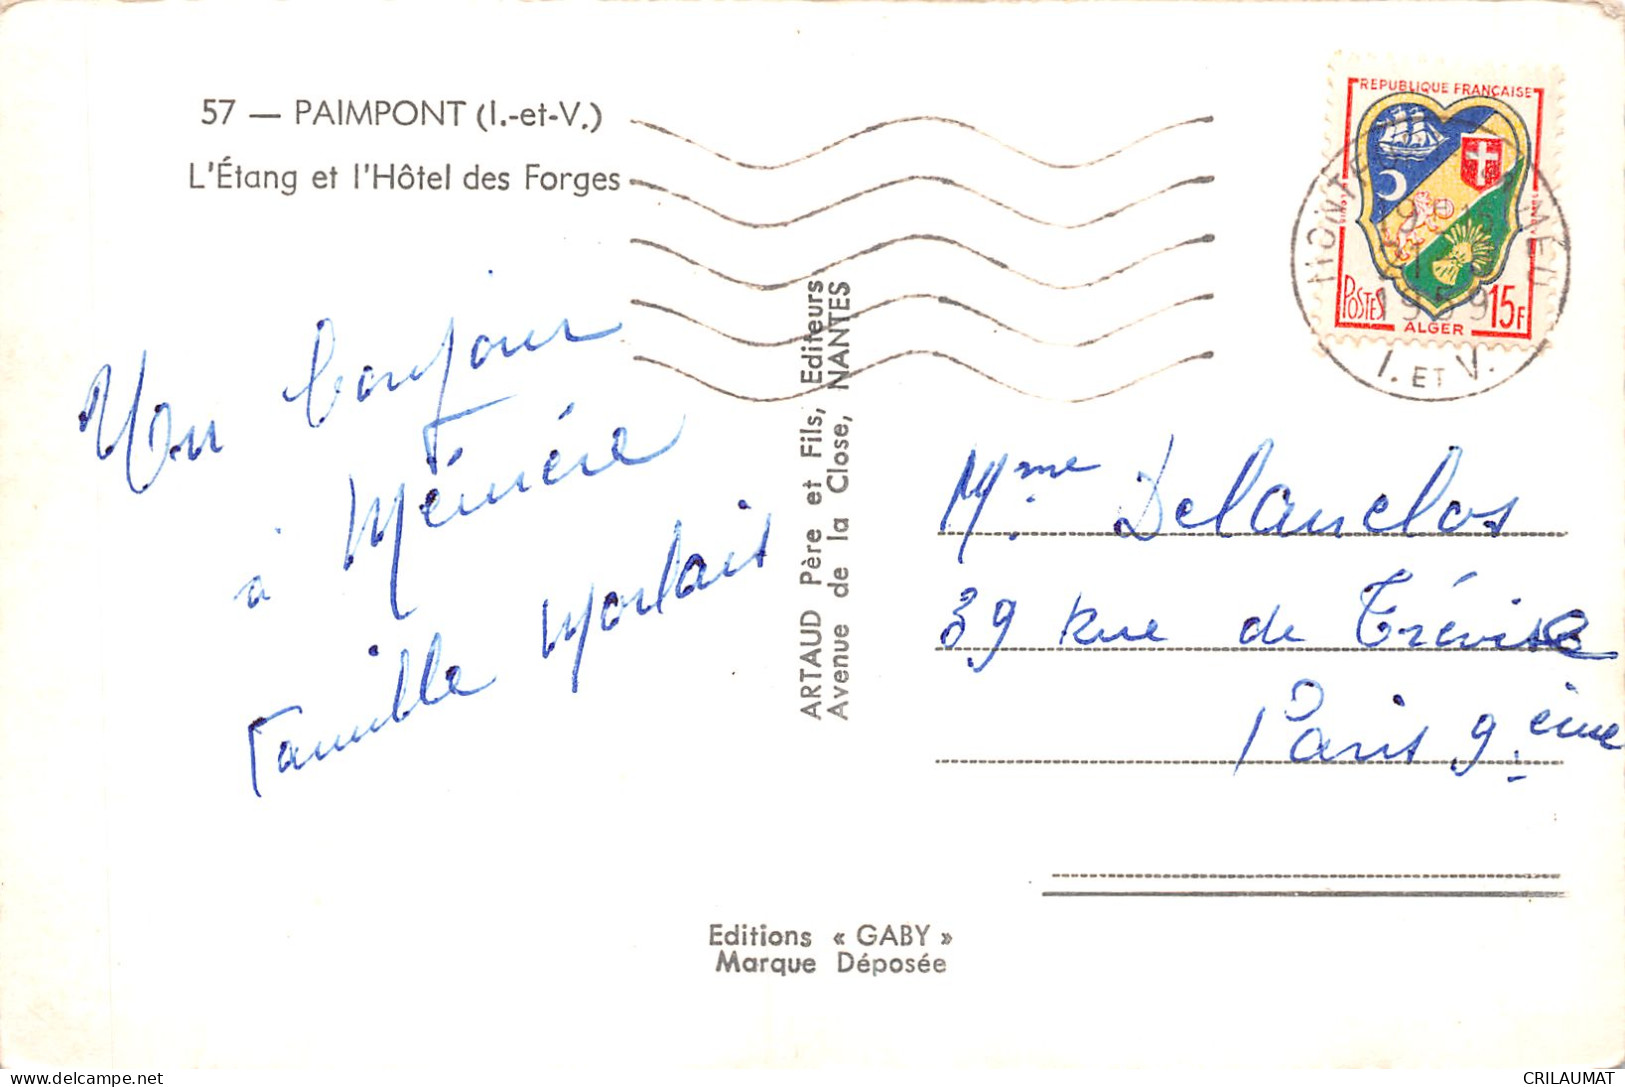 57 — PAIMPONT (I.-et-V.)
L'Étang et l'Hôtel des Forges
Un bonjour
à Mémère
Famille Morlait
ARTAUD Père et Fils, Editeurs
Avenue de la Close, NANTES
REPUBLIQUE FRANÇAISE
POSTES
15F
ALGER
1959
I. ET V.
Mme Delanclos
39 Rue de Trévise
Paris 9ème
Editions « GABY »
Marque Déposée
CRILAUMAT